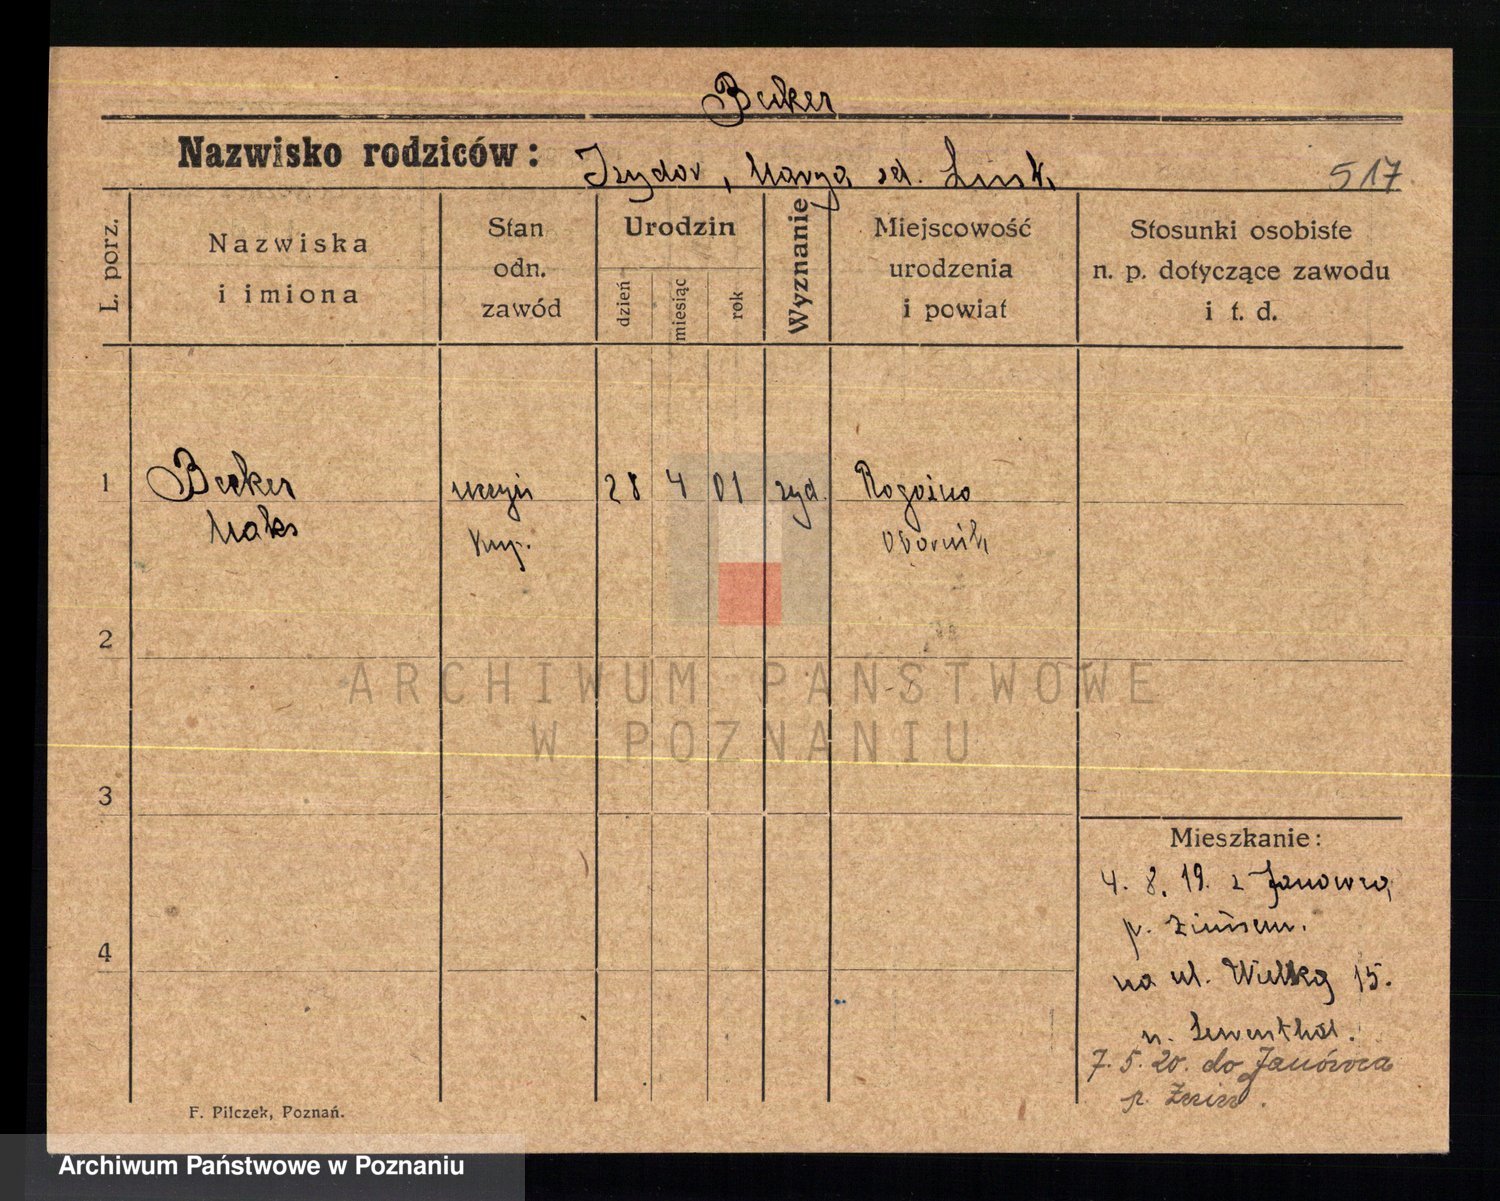 Becker
Nazwisko rodziców: Izydor, Marya 517
L. porz.
Nazwiska
i imiona
Stan
odn.
zawód
Urodzin
dzień
miesiąc
rok
Wyznanie
Miejscowość
urodzenia
i powiat
Stosunki osobiste
n. p. dotyczące zawodu
i t. d.
1 Becker 28 4 01 żyd. Rogoźno
Maks kup. Obornik
2
3
4
ARCHIWUM PAŃSTWOWE
W POZNANIU
Mieszkanie:
4. 8. 19. z Janowca,
p.
na ul. Wielką 15.
7. 5. 20. do Janówca
p. Żnin.
F. Pilczek, Poznań.
Archiwum Państwowe w Poznaniu